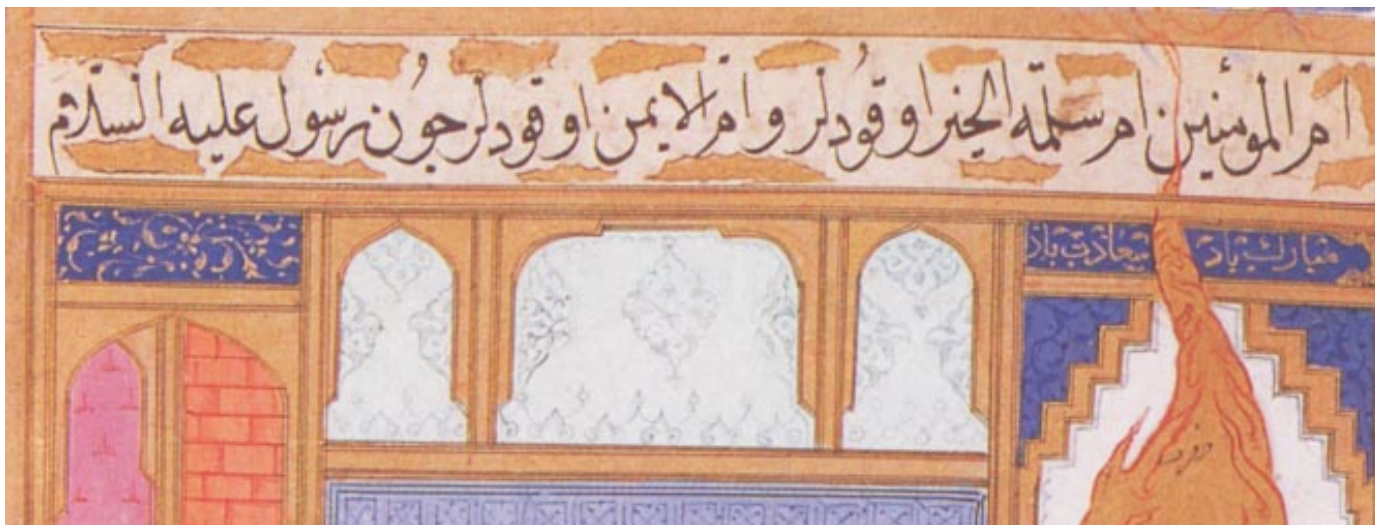 امّ المؤمنين ام سلمة الخير اوقودلر و امّ الايمن اوقودلر جون رسول عليه السلام
مبارك باد سعادت باد